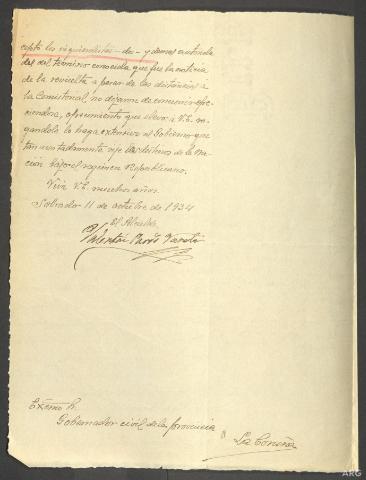 cepto los izquierdistas - dos - y demas entida
des del termino conocida que fue la noticia
de la revuelta a pesar de las distancias a
la Consistorial, no dejaron de
ofrecimiento que elevo a V.E. ro
gandole la haga extensiva al Gobierno que
tan acertadamente rije los destinos de la Na
ción bajo el regimen Republicano.
Viva V.E. muchos años.
Sobrado 11 de octubre de 1934
El Alcalde,
Valentín Varela
Excmo Sr.
Gobernador civil de la provincia
La Coruña
ARG